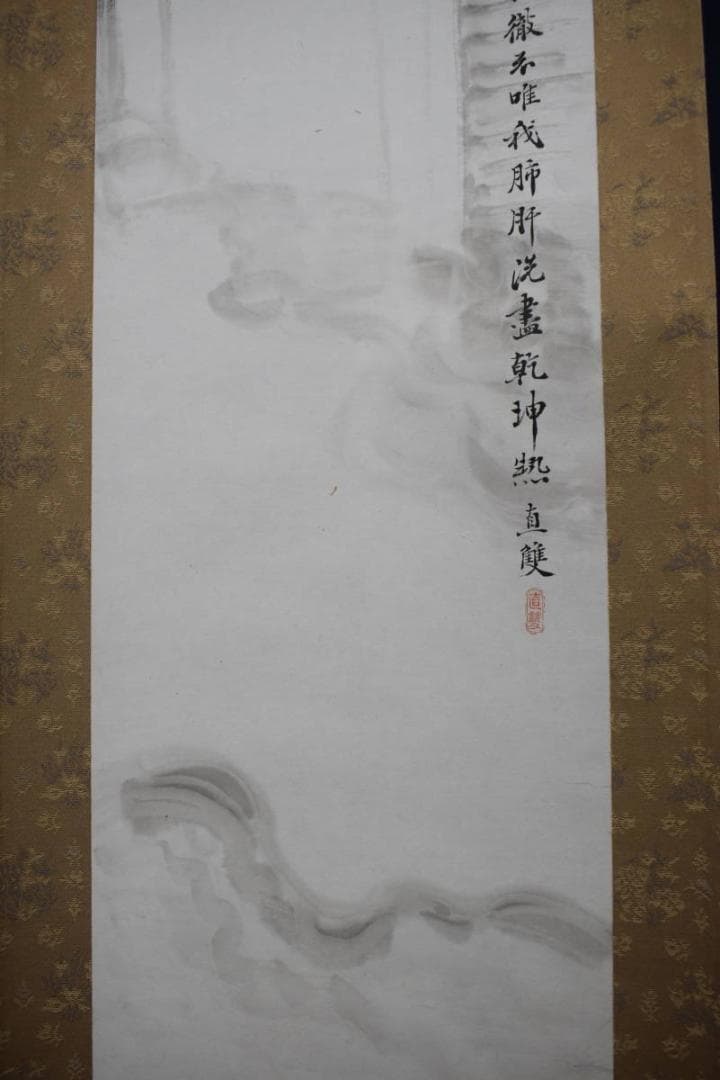 徹不唯我肺肝洗盡乾坤熱 直雙
直雙